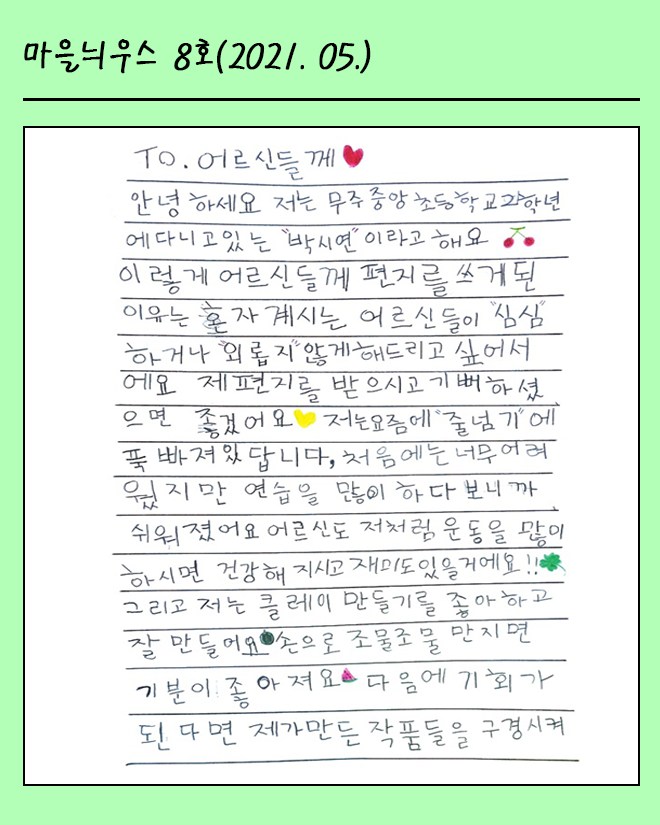 마을늬우스 8호(2021. 05.)
TO. 어르신들께
안녕하세요 저는 무주중앙초등학교 2학년
에다니고있는 "박시연"이라고해요
이렇게 어르신들께 편지를 쓰게된
이유는 혼자계시는 어르신들이 "심심"
하거나 "외롭지"않게해드리고 싶어서
에요 제편지를 받으시고기뻐하셨
으면 좋겠어요 저는요즘에"줄넘기"에
푹빠져있답니다, 처음에는너무어려
웠지만 연습을 많이하다보니까
쉬워졌어요어르신도 저처럼운동을많이
하시면 건강해지시고재미도있을거에요!!
그리고 저는 클레이 만들기를 좋아하고
잘만들어요 손으로 조물조물 만지면
기분이 좋아져요 다음에기회가
된다면 제가만든작품들을구경시켜